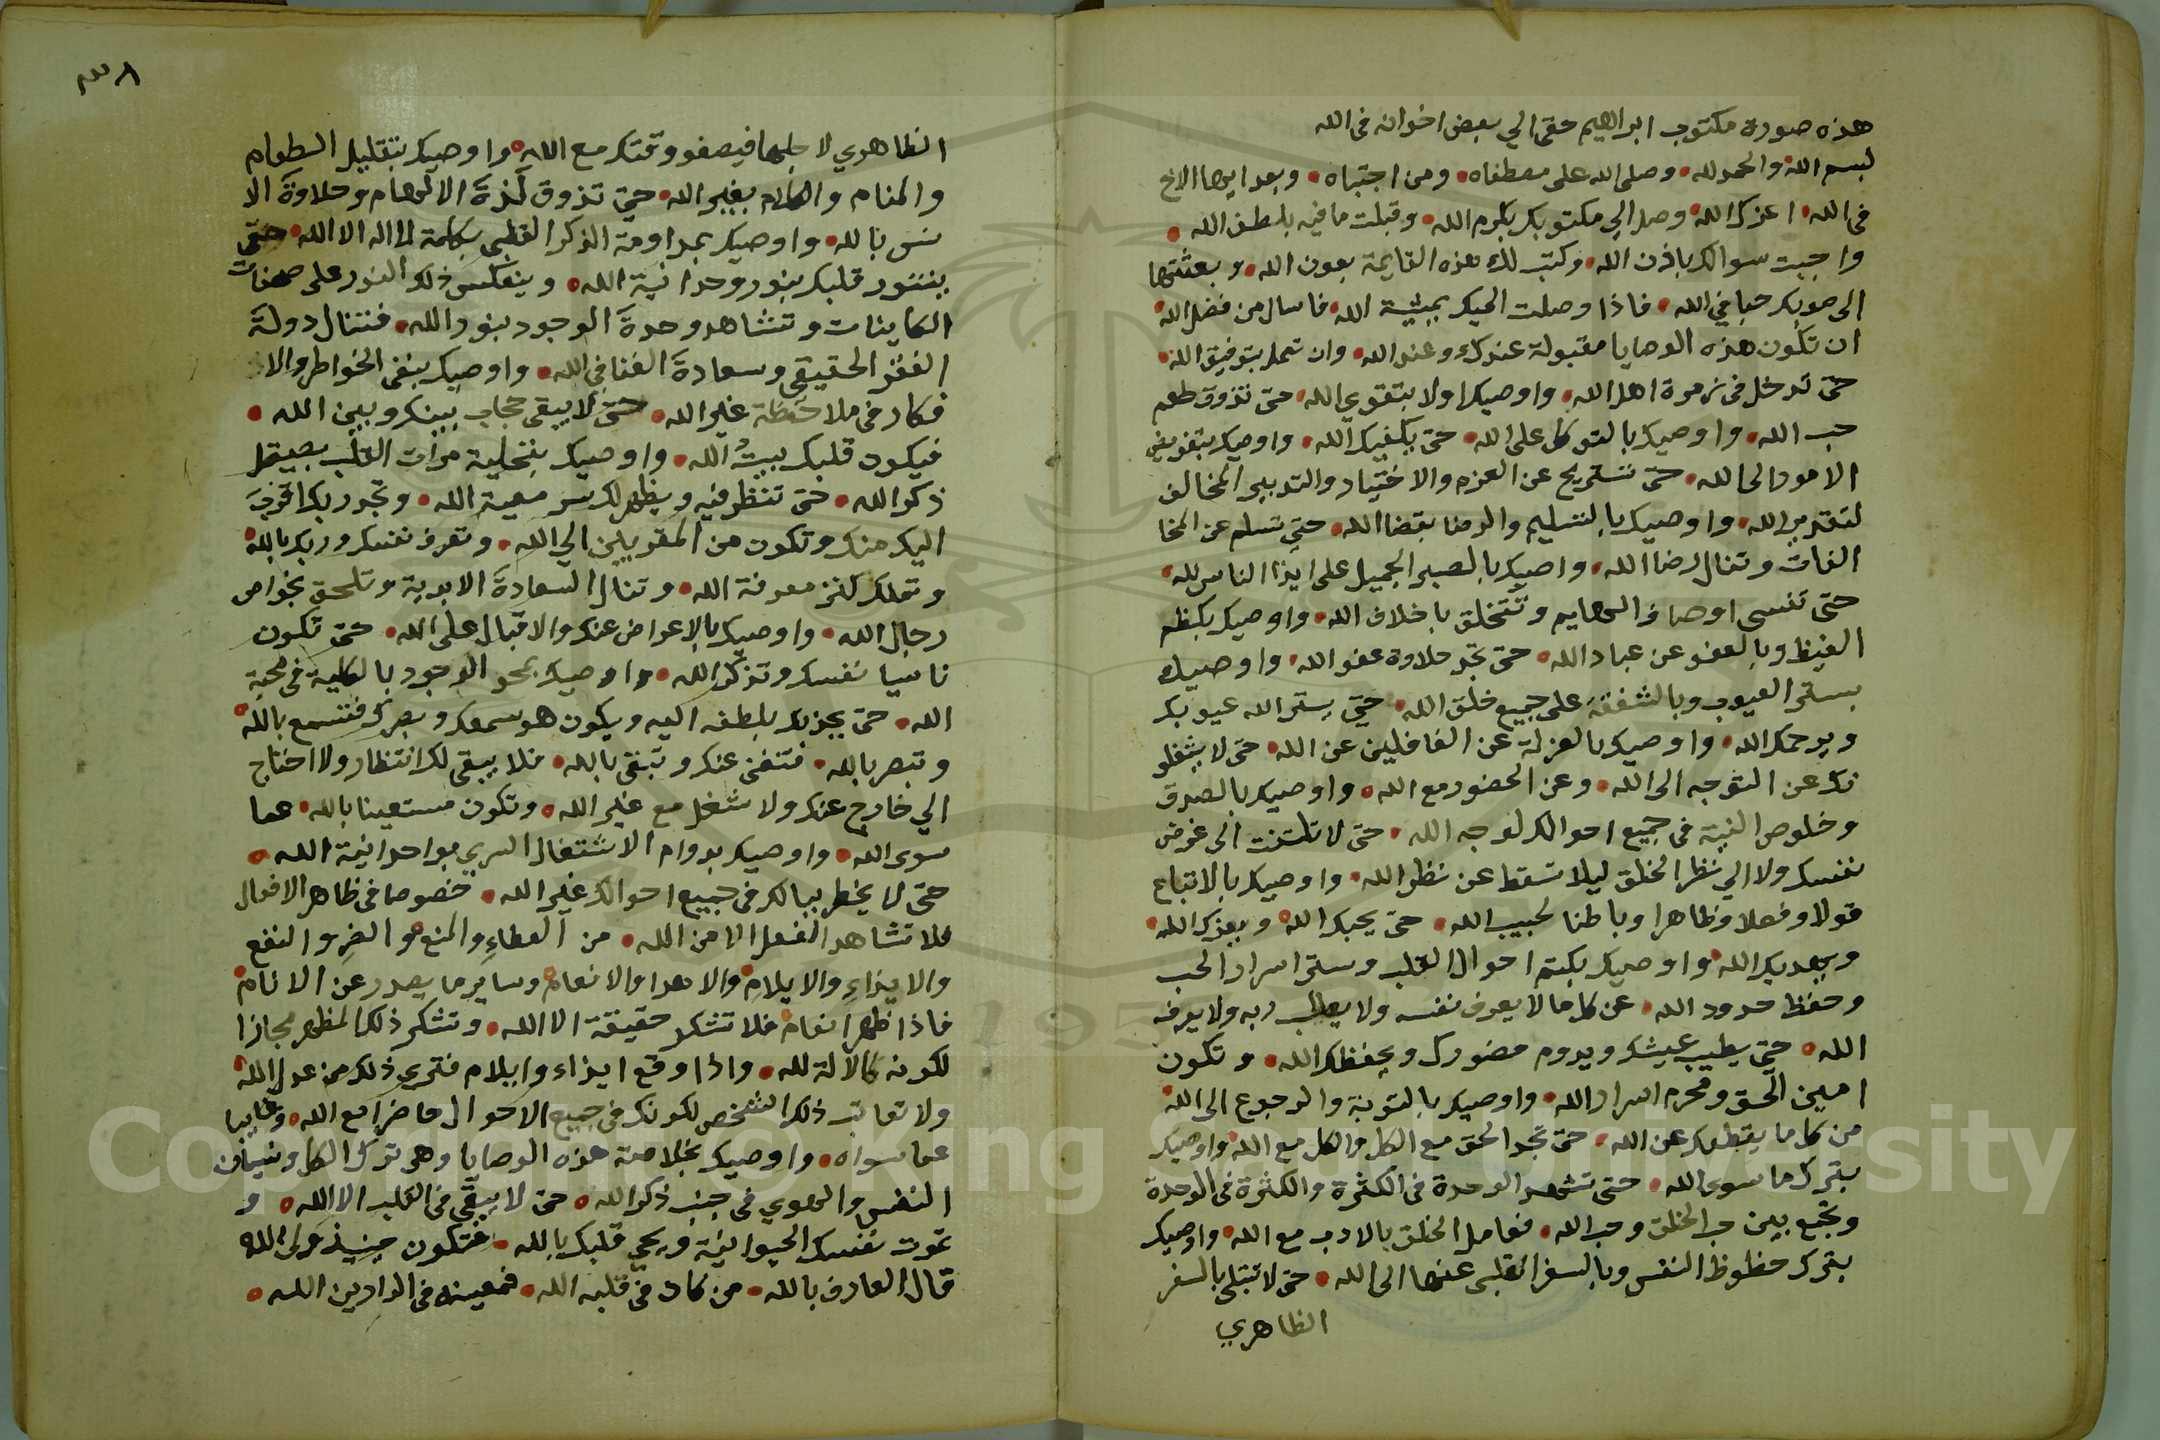 هذه صورة مكتوب ابراهيم حقي الي بعض اخوانه في الله
بسم الله والحمد لله وصلى الله على مصطفاه ومن اجتباه وبعد ايها الاخ
في الله اعزك الله وصل الي مكتوبكر بكرم الله وقبلت ما فيه بلطف الله
واجبت سوالك باذن الله وكتبت لك هذه القايمة بعون الله وبعثتها
الى صوبك حبا في الله فاذا وصلت اليك بمشية الله فاسال من فضل الله
ان تكون هذه الوصايا مقبولة عندك وعند الله وان تعمل بتوفيق الله
حتى تدخل في زمرة اهل الله واوصيك اولا بتقوي الله حتى تذوق طعم
حب الله واوصيك بالتوكل على الله حتى يكفيك الله واوصيك بتفويض
الامور الى الله حتى تستريح عن العزم والاختيار والتدبير المخالف
لتقدير الله واوصيك بالتسليم والرضا بقضا الله حتى تسلم عن المخا
الفات وتنال رضا الله واصيك بالصبر الجميل على ايذا الناس لله
حتى تنسى اوصاف البهايم وتتخلق باخلاق الله واوصيك بكظم
الغيظ وبالعفو عن عباد الله حتى تجد حلاوة عفو الله واوصيك
بستر العيوب وبالشفقة على جميع خلق الله حتي يستر الله عيوبك
ويرحمك الله واوصيك بالعزلة عن الغافلين عن الله حتى لا يشغلو
نك عن التوجه الى الله وعن الحضور مع الله واوصيك بالصدق
وخلوص النية في جميع احوالك لوجه الله حتى لا تلتفت الى غرض
نفسك ولا الي نظر الخلق ليلا تسقط عن نظر الله واوصيك بالاتباع
قولا وفعلا وظاهرا وباطنا لحبيب الله حتى يحبك الله ويعزك الله
ويهديك الله واوصيك بكتم احوال القلب وستر اسرار الحب
وحفظ حدود الله عن كل ما لا يعرف نفسه ولا يطلب ربه ولا يعرف
الله حتي يطيب عيشك ويدوم حضورك ويحفظك الله وتكون
امين الحق ومحرم اسرار الله واوصيك بالتوبة والرجوع الى الله
من كل ما يقطعك عن الله حتى تجد الحق مع الكل والكل مع الله واوصيك
بترك ما سوى الله حتى تشهد الوحدة في الكثرة والكثرة في الوحدة
وتجمع بين حب الخلق وحب الله فعامل الخلق بالادب مع الله واوصيك
بترك حظوظ النفس وبالسفر القلبى عنها الى الله حتى لا تبتلى بالسفر
الظاهري
٣٨
الظاهري لا جلها فيصفو وقتك مع الله واوصيك بتقليل الطعام
والمنام والكلام بغير الله حتي تذوق لذة الالهام وحلاوة الا
نس بالله واوصيك بمداومة الذكر القلبي بكلمة لا اله الا الله حتى
يتنور قلبك بنور وحدانية الله وينعكس ذلك النور على صفات
الكاينات وتشاهد وحدة الوجود بنور الله فتنال دولة
الفقر الحقيقي وسعادة الفنا في الله واوصيك بنفي الخواطر والا
فكار في ملاحظة غير الله حتى لا يبقى حجاب بينك وبين الله
فيكون قلبك بيت الله واوصيك بتجلية مرات القلب بصيقل
ذكر الله حتى تنظر فيه ويظهر لك سر معية الله وتجد ربك اقرب
اليك منك وتكون من المقربين الي الله وتعرف نفسك وربك بالله
وتملك كنز معرفة الله وتنال السعادة الابدية وتلحق بخواص
رجال الله واوصيك بالاعراض عنك والاقبال على الله حتى تكون
ناسيا نفسك وتذكر الله واوصيك بمحو الوجود بالكلية في محبة
الله حتى يجذبك بلطفه اليه ويكون هو سمعك وبصرك فتسمع بالله
وتبصر بالله فتفنى عنك وتبقى بالله فلا يبقى لك انتظار ولا احتاج
الي خارج عنك ولا شغل مع غير الله وتكون مستعينا بالله عما
سوى الله واوصيك بدوام الاشتغال السري بواحدانية الله
حتى لا يخطر ببالك في جميع احوالك غير الله خصوصا في ظاهر الافعال
فلا تشاهد الفعل الا من الله من العطاء والمنع والضر والنفع
والايذاء والايلام والاهدا والانعام وساير ما يصدر عن الانام
فاذا ظهر انعام فلا تشكر حقيقة الا الله وتشكر ذلك المظهر مجازا
لكونه كالالة لله واذا وقع ايذاء وايلام فترى ذلك من عدل الله
ولا تعاتب ذلك الشخص لكونك في جميع الاحوال حاضرا مع الله وغايبا
عما سواه واوصيك بخلاصة هذه الوصايا وهي ترك الكل ونسيان
النفس والهوي في جنب ذكر الله حتى لا يبقى في القلب الا الله و
تموت نفسك الحيوانية ويحي قلبك بالله فتكون حينيذ
قال العارف بالله من كان في قلبه الله فمعينه في الدارين الله
Copyright © King Saud University
195